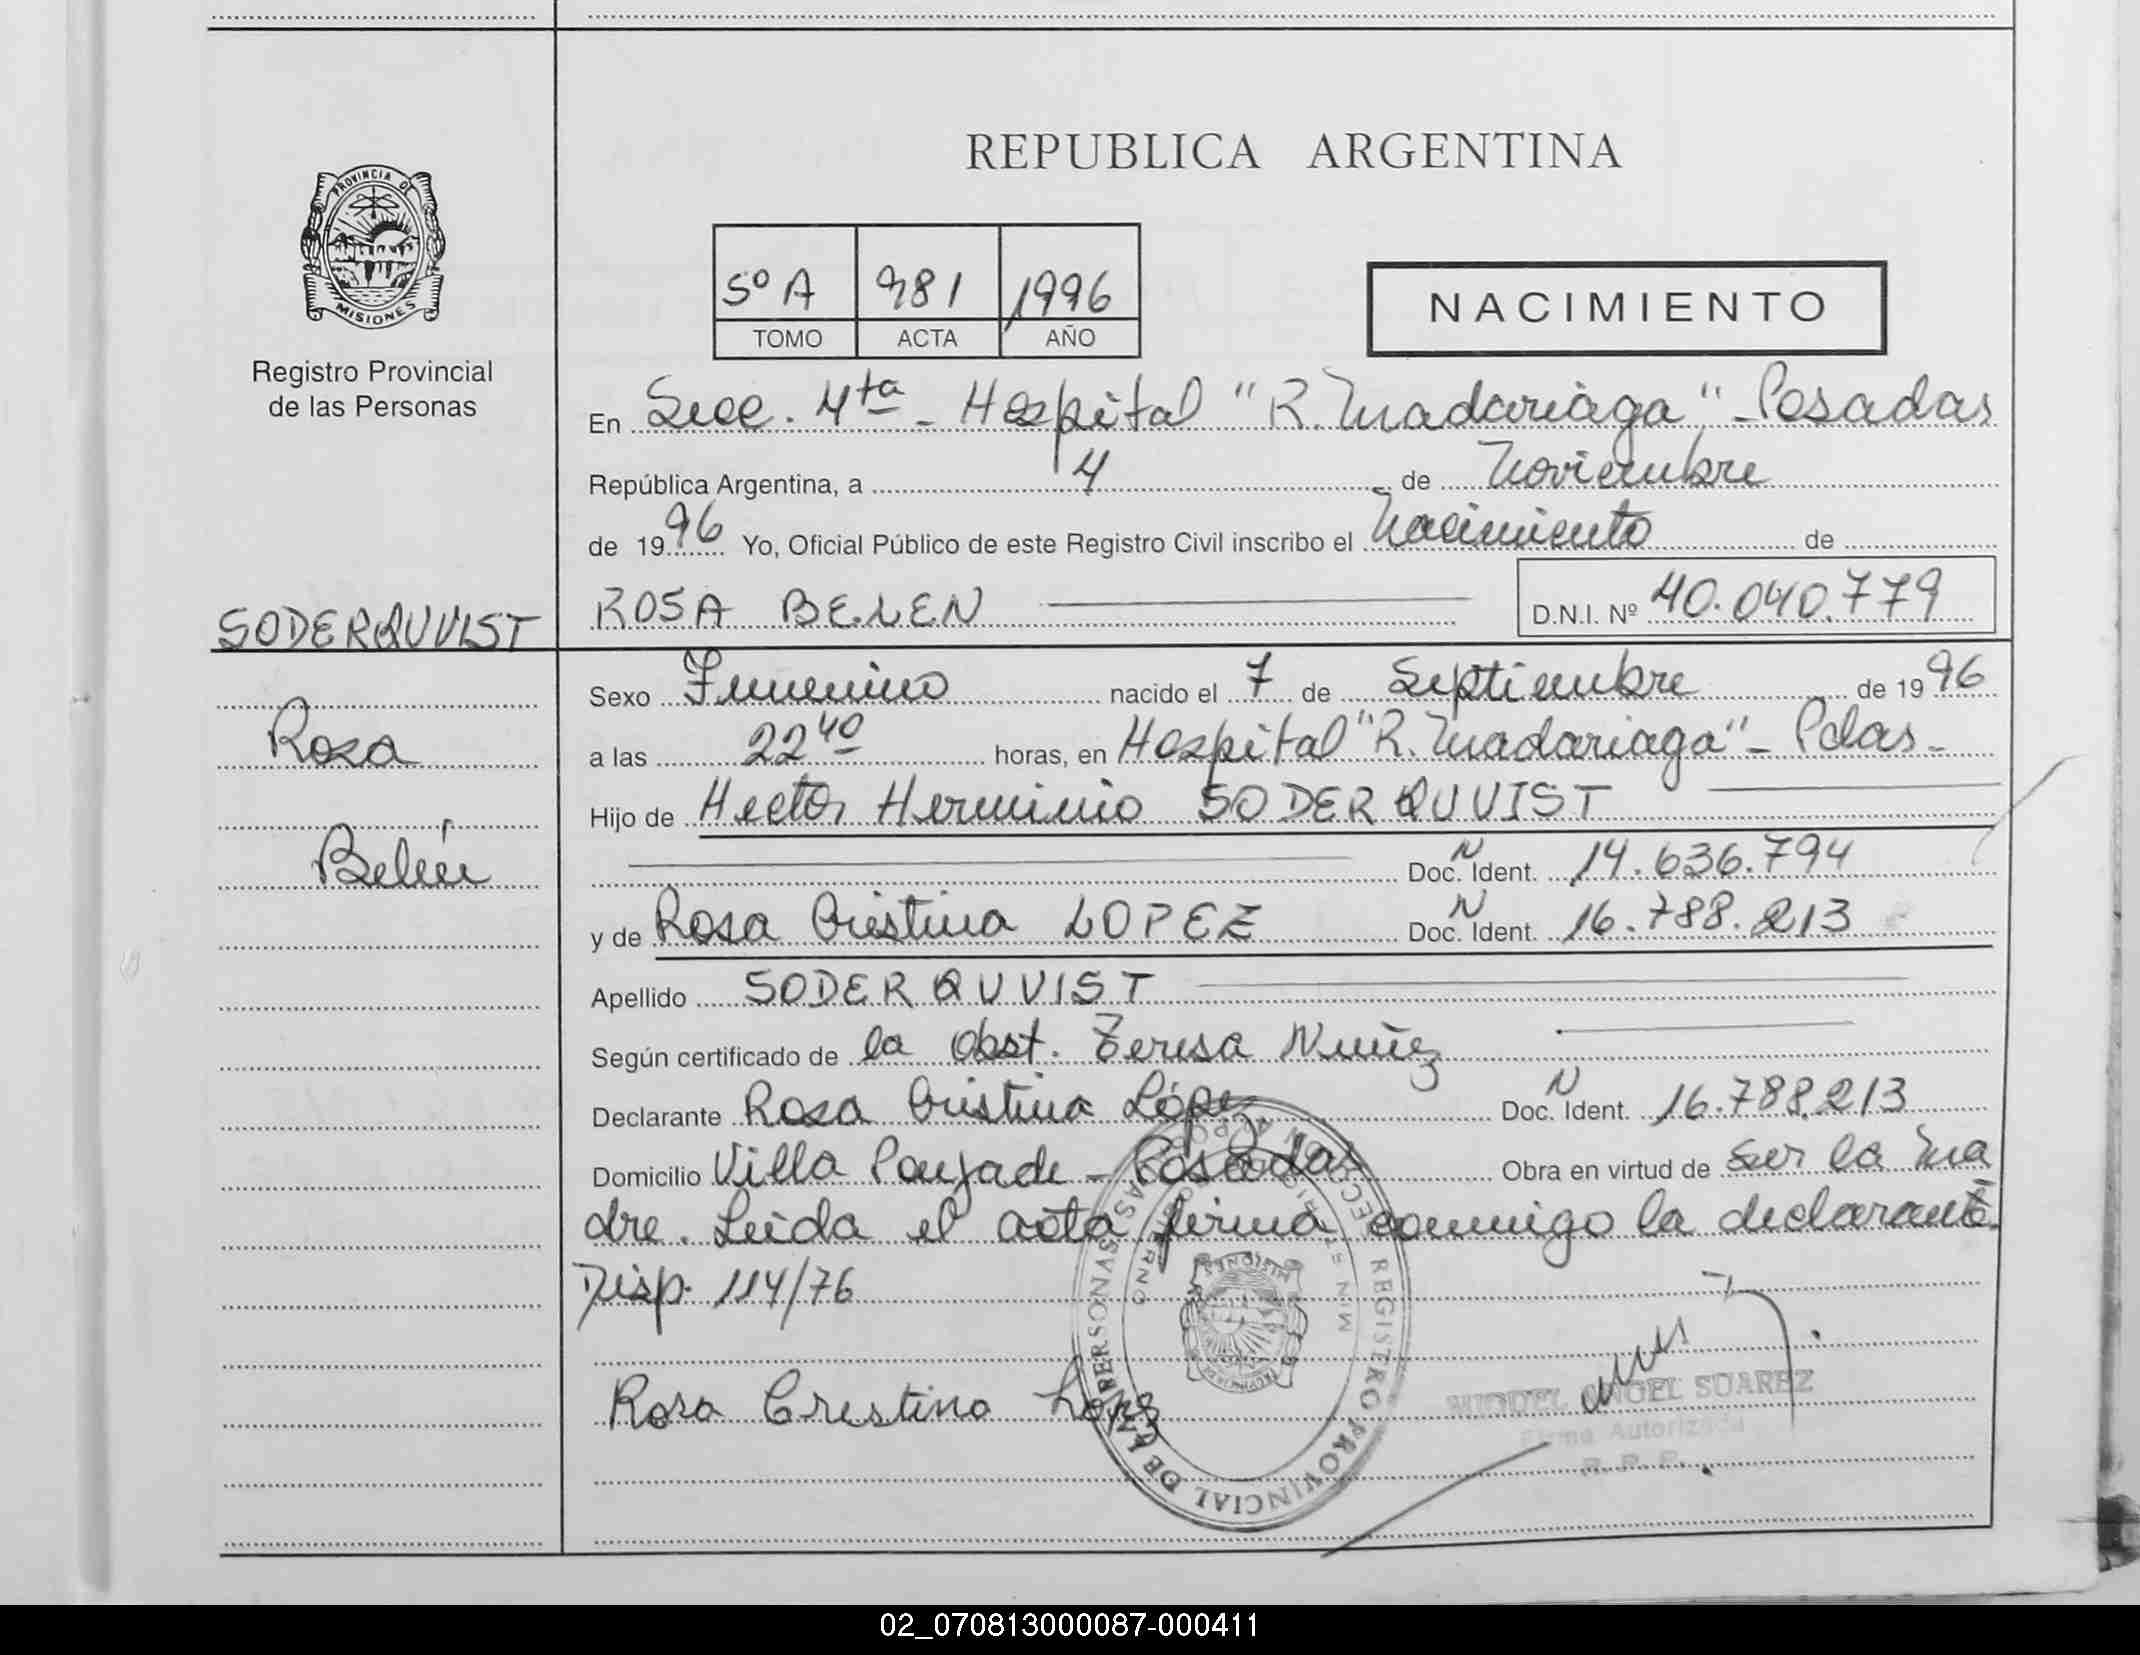 REPUBLICA ARGENTINA
PROVINCIA DE
MISIONES
Registro Provincial
de las Personas
5º A 981 1996
TOMO ACTA AÑO
NACIMIENTO
En Secc. 4ta - Hospital "R. Madariaga" - Posadas
República Argentina, a 4 de Noviembre
de 1996 Yo, Oficial Público de este Registro Civil inscribo el Nacimiento de
SODERQUVIST
ROSA BELEN D.N.I. Nº 40.040.779
Sexo Femenino nacido el 7 de Septiembre de 1996
Rosa
a las 22 40 horas, en Hospital "R. Madariaga" - Pdas -
Hijo de Hector Herminio SODERQUVIST
Belén
Doc. N Ident. 14.636.794
y de Rosa Cristina LOPEZ Doc. N Ident. 16.788.213
Apellido SODERQUVIST
Según certificado de la Obst. Teresa Nuñez
Declarante Rosa Cristina López Doc. N Ident. 16.788.213
Domicilio Villa Poujade - Posadas Obra en virtud de ser la ma
dre. Leída el acta firma conmigo la declarante.
Disp. 114/76
Rosa Cristina López
REGISTRO PROVINCIAL DE LAS PERSONAS
MISIONES
MIGUEL ANGEL SUAREZ
Firma Autorizada
R. P. P.
02_070813000087-000411